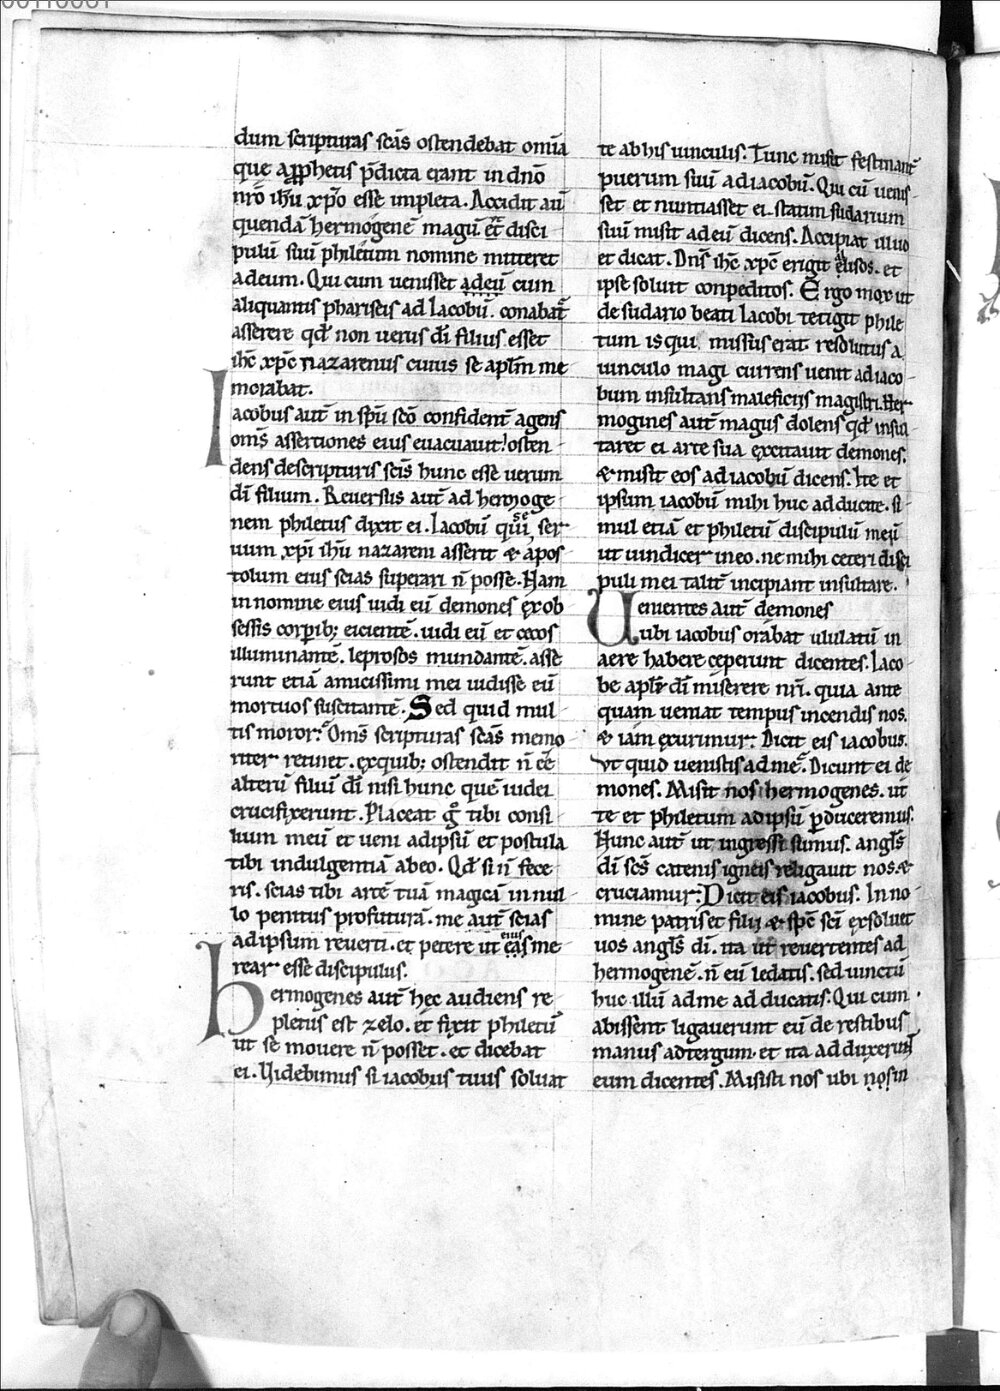 dum scripturas scās ostendebat om̄ia
que a ꝓphetis p̄dicta erant in dn̄o
nr̄o ih̄u xp̄o esse impleta. Accidit aū
quendā hermogenē magū et disci
pulū suū philetum nomine mitteret
ad eum. Qui cum uenisset ad eū cum
aliquantis phariseis ad Iacobū. conabat᷑
asserere qd̄ non uerus dī filius esset
ih̄c xp̄c nazarenus cuius se apl̄m me
morabat.
Iacobus aut̄ in sp̄u sc̄o confident̄ agens
om̄s assertiones eius euacuauit. osten
dens de scripturis sc̄is hunc esse uerum
dī filium. Reuersus aut̄ ad hermoge
nem philetus dixit ei. Iacobū qui se ser
uum xp̄i ih̄u nazareni asserit & apos
tolum eius scias superari n̄ posse. Nam
in nomine eius uidi eū demones ex ob
sessis corporib; eicientē. uidi eū et cecos
illuminantē. leprosos mundantē. asse
runt etiā amicissimi mei uidisse eū
mortuos suscitantē. Sed quid mul
tis moror. Om̄s scripturas scās memo
riter retinet. ex quib; ostendit n̄ eē
alterū filiū dī nisi hunc quē iudei
crucifixerunt. Placeat gͦ tibi consi
lium meū et ueni ad ipsū et postula
tibi indulgentiā ab eo. Qd̄ si n̄ fece
ris. scias tibi artē tuā magicā in nul
lo penitus profuturā. me aut̄ scias
ad ipsum reuerti. et petere ut eius me
rear esse discipulus.
Hermogenes aut̄ hec audiens re
pletus est zelo. et fixit philetū
ut se mouere n̄ posset. et dicebat
ei. Videbimus si iacobus tuus soluat
te ab his uinculis. Tunc misit festinant̄
puerum suū ad iacobū. Qui cū uenis
set et nuntiasset ei. statim sudarium
suū misit ad eū dicens. Accipiat illud
et dicat. Dn̄s ih̄c xp̄c erigit elisos. et
ipse soluit conpeditos. Ergo mox ut
de sudario beati Iacobi tetigit phile
tum is qui missus erat resolutus a
uinculo magi currens uenit ad iaco
bum insultans maleficijs magistri. Her
mogines aut̄ magus dolens qd̄ insul
taret ei arte sua excitauit demones.
& misit eos ad iacobū dicens. Ite et
ipsum iacobū mihi huc adducite. si
mul etiā et philetū discipulū meū
ut uindicer in eo. ne mihi ceteri disci
puli mei talit̄ incipiant insultare.
Uenientes aut̄ demones
ubi iacobus orabat ululatū in
aere habere ceperunt dicentes. Iaco
be apl̄e dī miserere nr̄i. quia ante
quam ueniat tempus incendij nos.
& iam exurimur. Dicit eis iacobus.
Vt quid uenistis ad me. Dicunt ei de
mones. Misit nos hermogenes. ut
te et philetum ad ipsū ꝑduceremus.
Nunc aut̄ ut ingressi sumus. angl̄s
dī sc̄s catenis igneis religauit nos. &
cruciamur. Dicit eis iacobus. In no
mine patris et filij & sp̄c sc̄i exsoluet
uos angl̄s dī. ita ut reuertentes ad
hermogenē. n̄ eū ledatis. sed uinctū
huc illū ad me adducatis. Qui cum
abissent ligauerunt eū de restibus
manus ad tergum. et ita adduxerunt
eum dicentes. Misisti nos ubi nos in